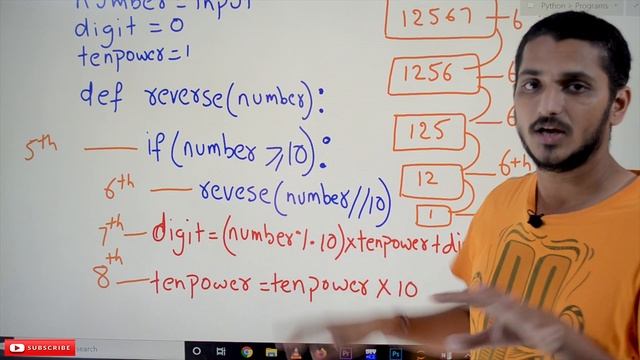 Python > Programs
number = input
digit = 0
tenpower = 1
def reverse(number):
5th if (number ⩾ 10):
6th revese(number//10)
7th digit = (number % 10) x tenpower + di
8th tenpower = tenpower x 10
12567 6
1256 6
125 6
12 6th
1
SUBSCRIBE
search